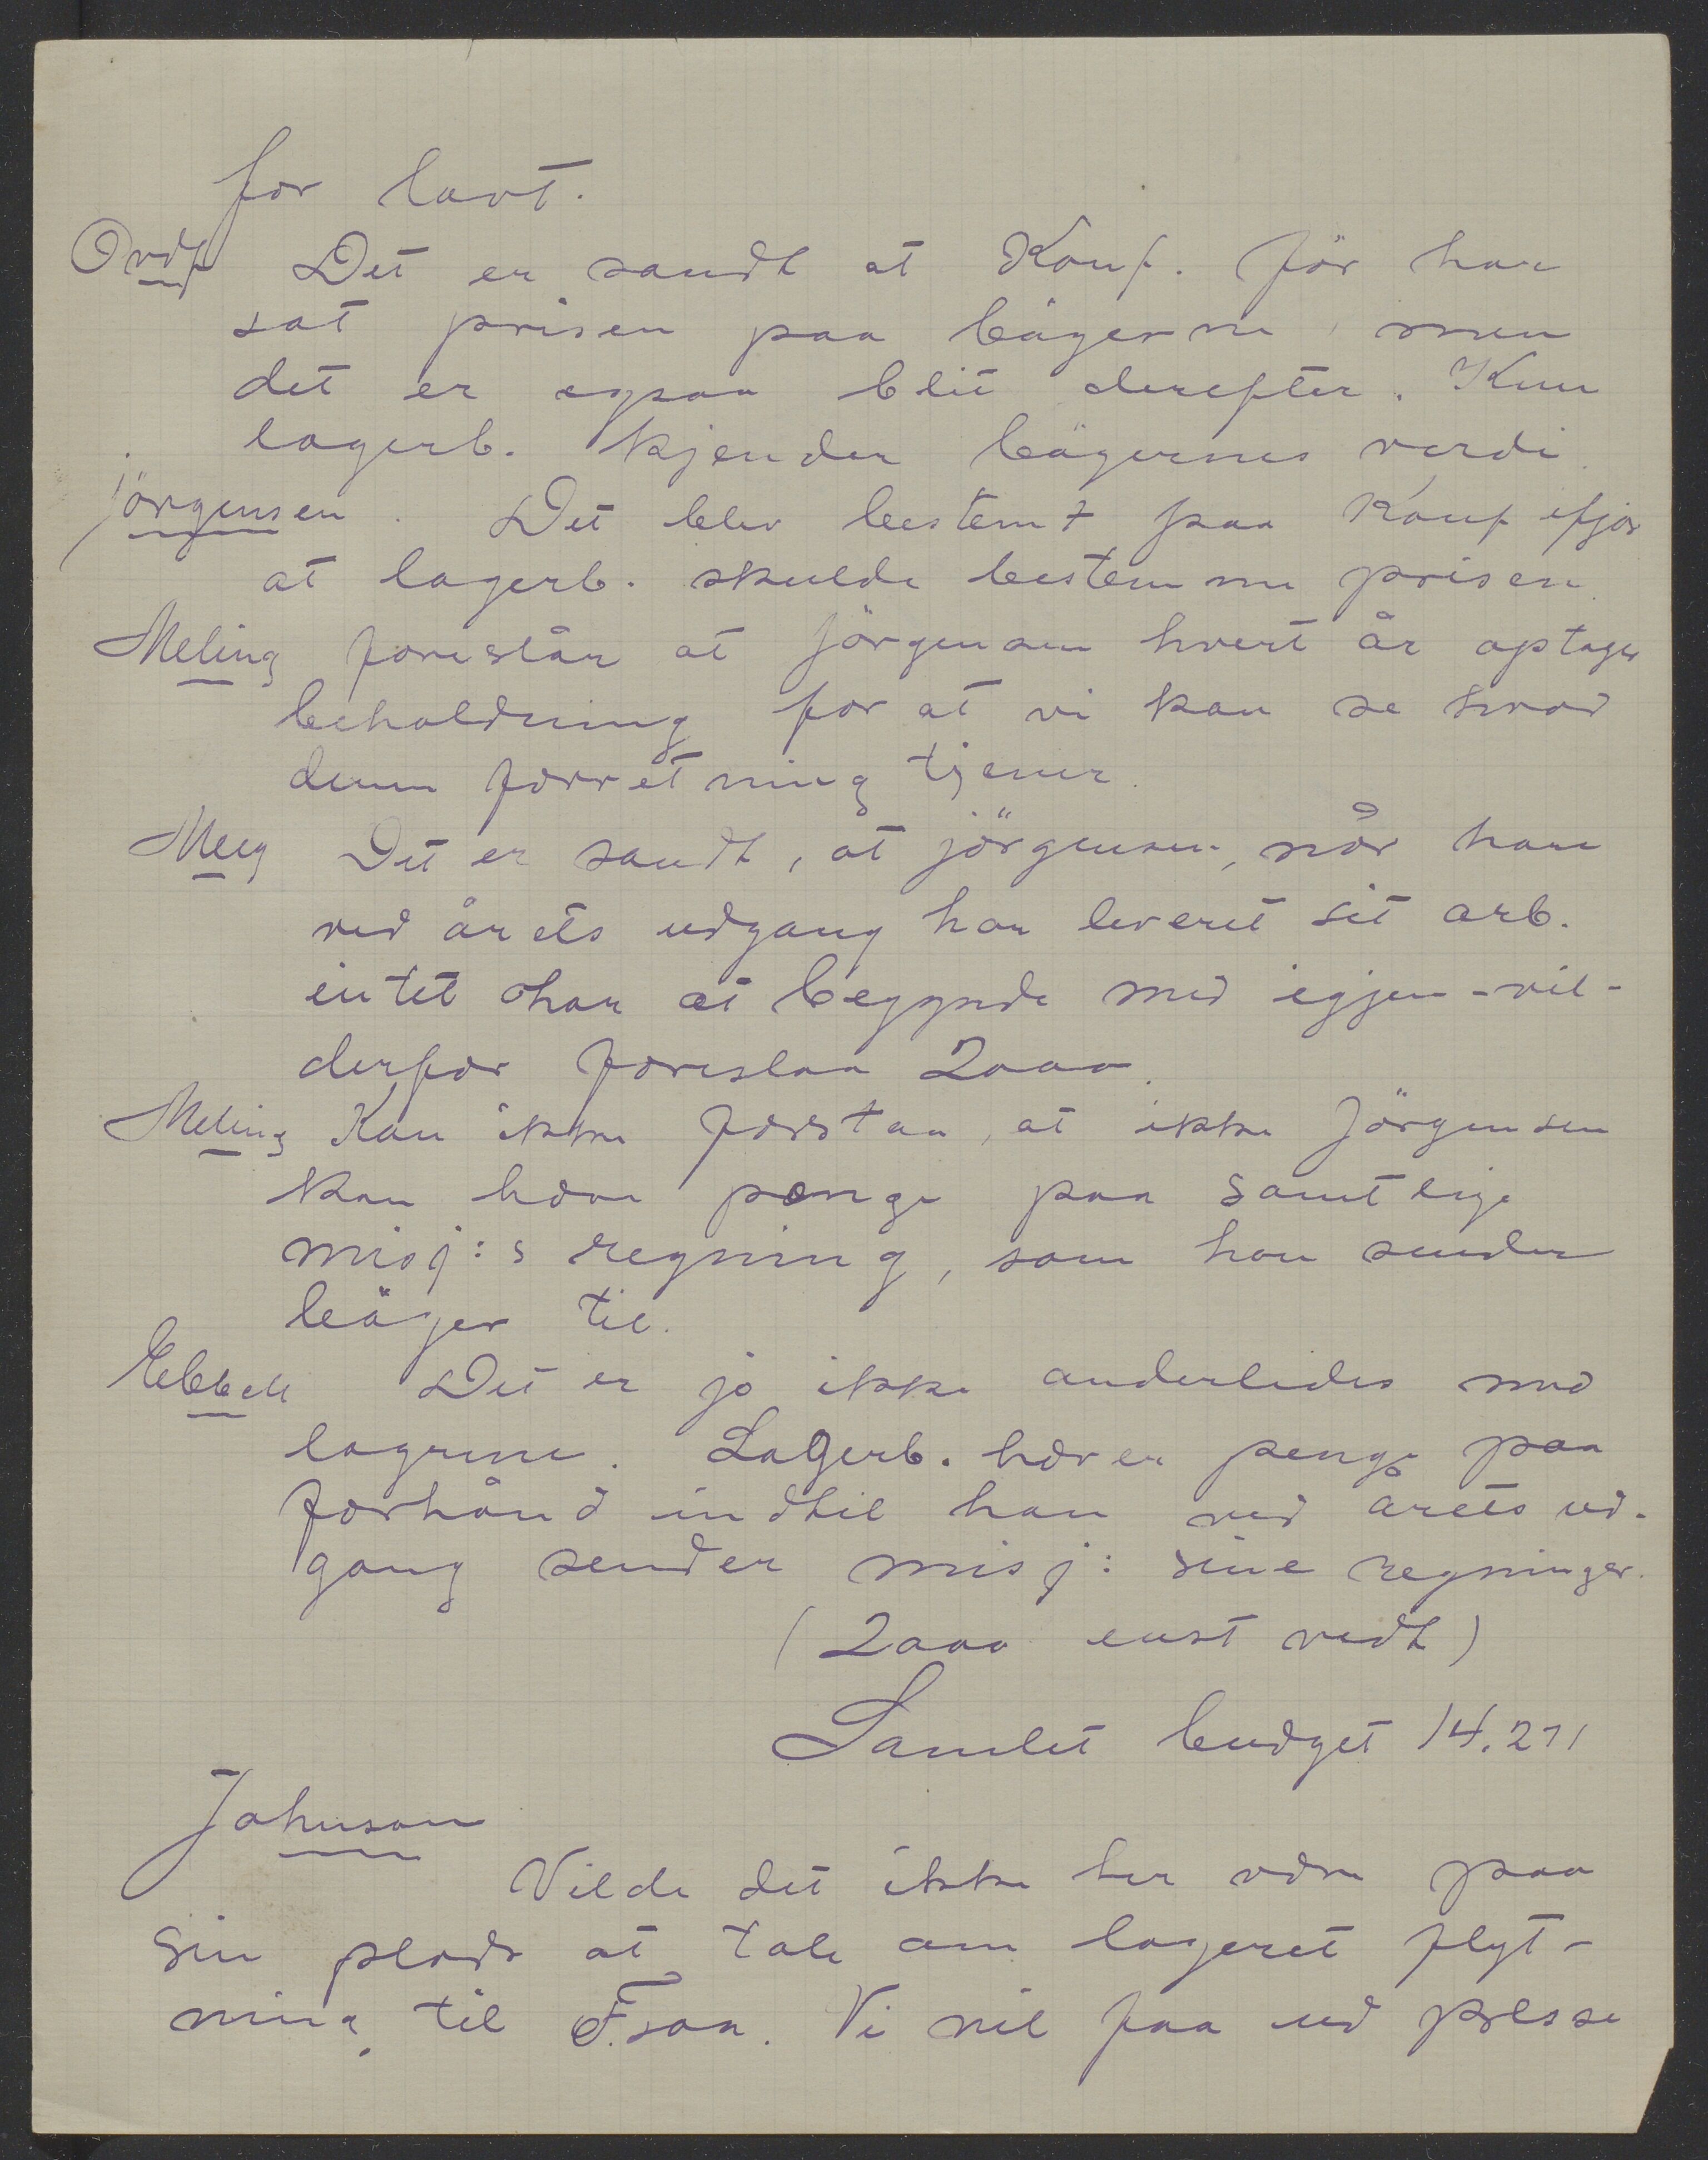 for lavt.
Ordf Det er sandt at Konf. før har
sat prisen paa bøgerne, men
det er ogsaa blit derefter. Kun
lagerb. kjender bøgernes verdi.
Jørgensen. Det blev bestemt paa Konf ifjor
at lagerb. skulde bestemme prisen.
Meling foreslår at Jørgensen hvert år optager
beholdning for at vi kan se hvad
denne forretning tjener.
Meeg Det er sandt, at jørgensen, når han
ved årets udgang har leveret sit arb.
intet har at begynde med igjen - vil-
derfor foreslaa 2000.
Meling Kan ikke forstaa, at ikke Jørgensen
kan hæve penge paa samtlige
misj:s regning, som han sender
bøger til.
Ebbell Det er jo ikke anderledes med
lagrene. Lagerb. hæver penge paa
forhånd indtil han ved årets ud-
gang sender misj: sine regninger.
(2000 enst vedt)
Samlet budget 14.271
Johnson
Vilde det ikke her være paa
sin plads at tale om lagerets flyt-
ning til F.soa. Vi vil faa ud presse